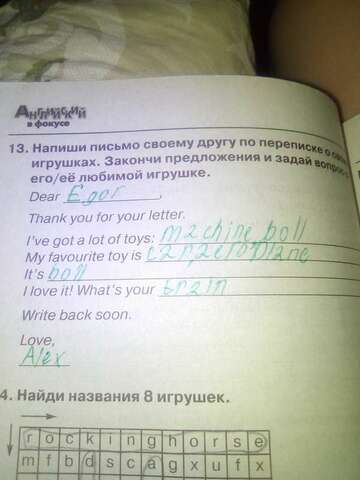 Английский
в фокусе
13. Напиши письмо своему другу по переписке о
игрушках. Закончи предложения и задай вопрос
его/её любимой игрушке.
Dear Egor,
Thank you for your letter.
I've got a lot of toys: machine boll
My favourite toy is car, aeroplane
It's boll
I love it! What's your train
Write back soon.
Love,
Alex
4. Найди названия 8 игрушек.
r o c k i n g h o r s e
m f b d s c a g x u f x